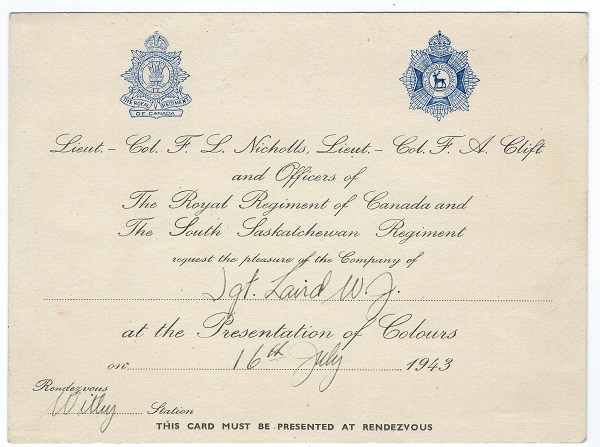 THE ROYAL REGIMENT
OF CANADA
Lieut. - Col. F. L. Nicholls, Lieut. - Col. F. A. Clift
and Officers of
The Royal Regiment of Canada and
The South Saskatchewan Regiment
request the pleasure of the Company of
Sgt. Laird W. J.
at the Presentation of Colours
on 16th July 1943
Rendezvous
Witley Station
THIS CARD MUST BE PRESENTED AT RENDEZVOUS